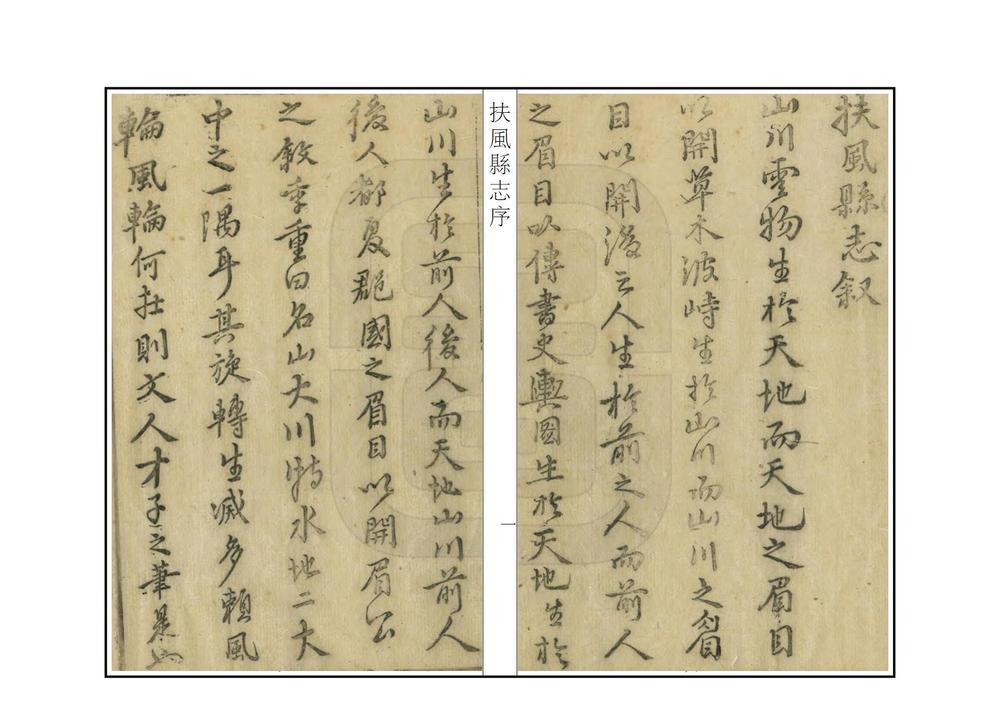 扶風縣志叙
山川雲物生於天地而天地之眉目
以開草木波峙生於山川而山川之眉
目以開後之人生於前之人而前人
之眉目以傳書史輿圖生於天地生於
扶風縣志序
一
山川生於前人後人而天地山川前人
後人都夏郡國之眉目以開眉公
之敘季重曰名山大川特水地二大
中之一隅耳其旋轉生滅多賴風
輪風輪何在則文人才子之筆是